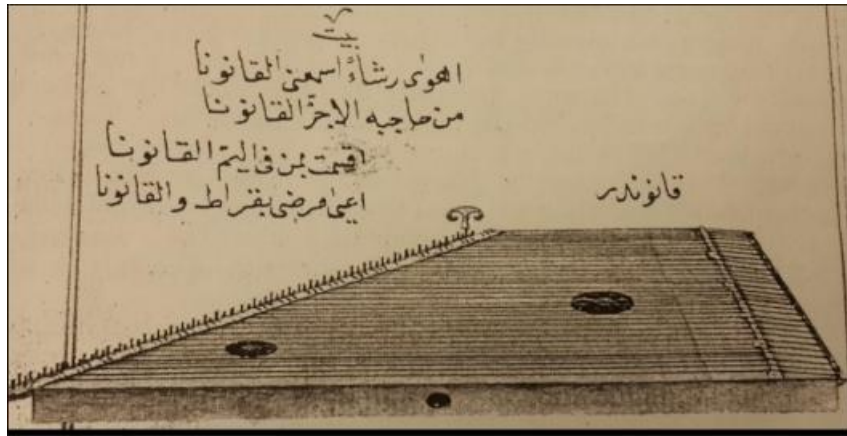 بيت
اهوى رشاءً اسمعنى القانونا
من حاجبه الاجرّ القانونا
اقسمت بمن فى اليمّ القانونا
اعيى مرضى بقراط والقانونا
قانوندر